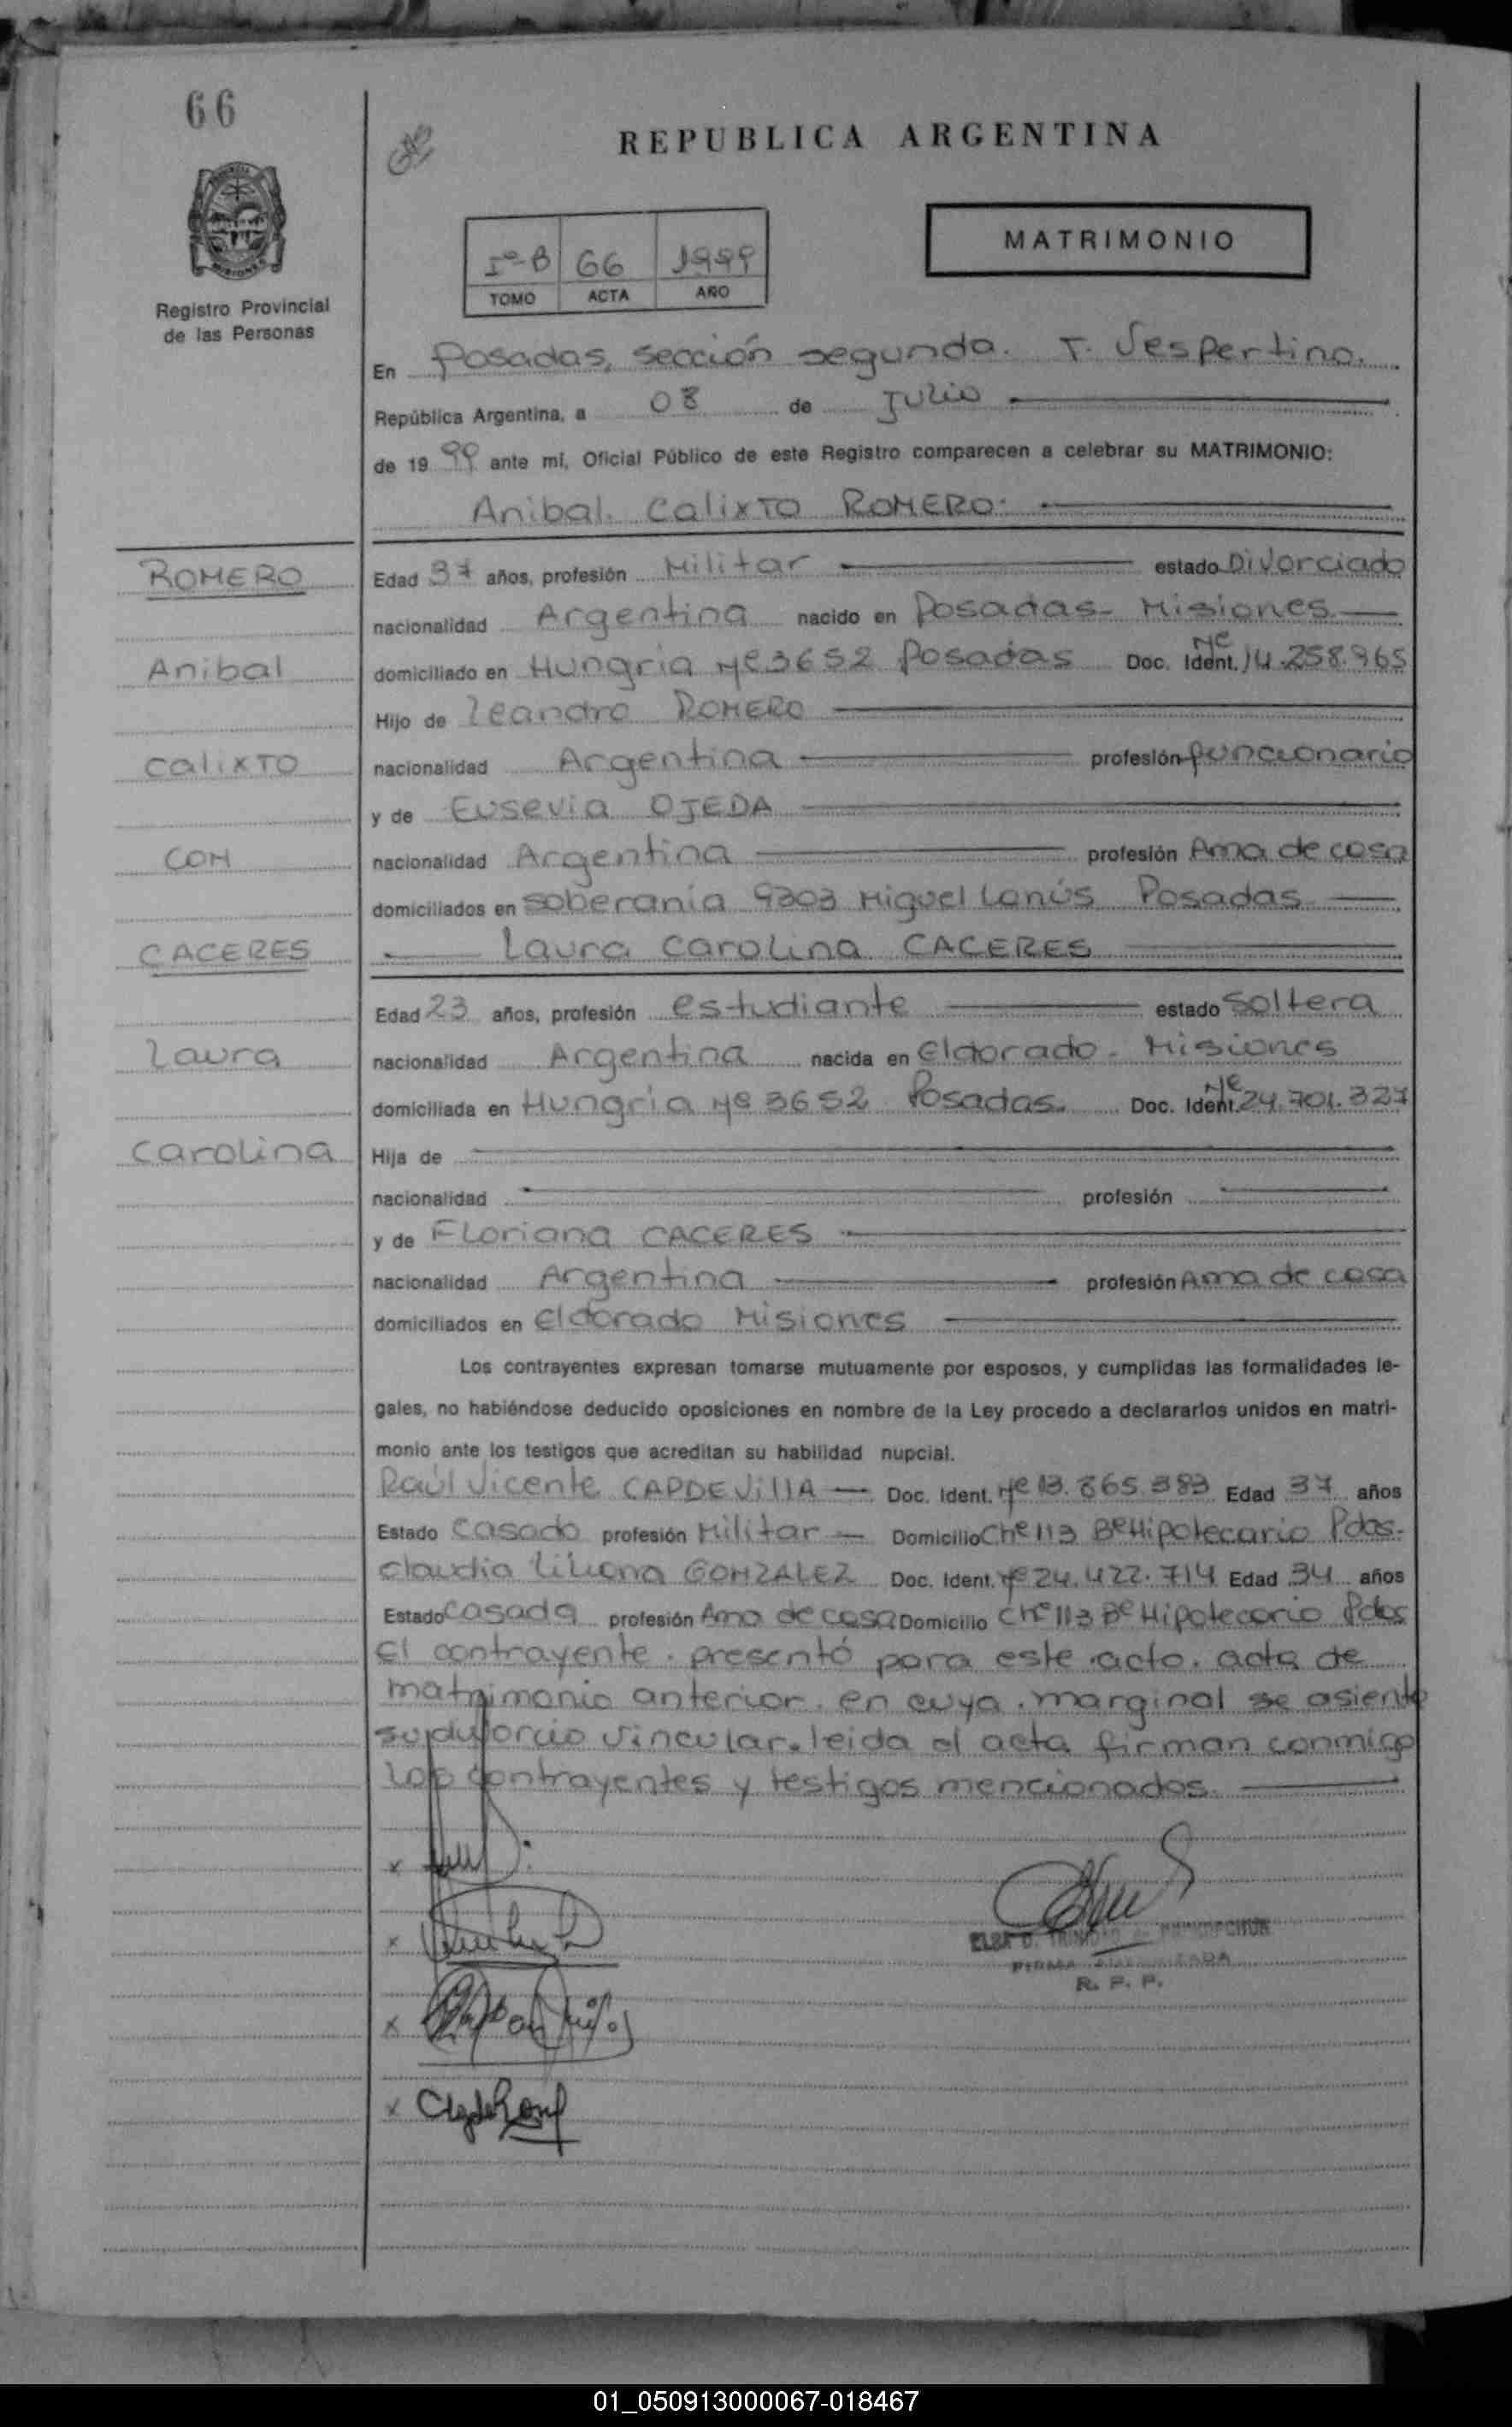 66
REPUBLICA ARGENTINA
MATRIMONIO
Iº-B 66 1999
TOMO ACTA AÑO
Registro Provincial
de las Personas
En Posadas, sección segunda. T. Vespertino.
República Argentina, a 08 de Julio
de 19 99 ante mí, Oficial Público de este Registro comparecen a celebrar su MATRIMONIO:
Anibal Calixto ROMERO
ROMERO
Anibal
Calixto
CON
CACERES
Laura
Carolina
Edad 37 años, profesión Militar estado Divorciado
nacionalidad Argentina nacido en Posadas - Misiones
domiciliado en Hungria Nº 3652 Posadas Doc. Ident. Nº 14.258.965
Hijo de Leandro ROMERO
nacionalidad Argentina profesión funcionario
y de Eusevia OJEDA
nacionalidad Argentina profesión Ama de casa
domiciliados en soberanía 9303 Miguel Lanús Posadas
Laura Carolina CACERES
Edad 23 años, profesión estudiante estado Soltera
nacionalidad Argentina nacida en Eldorado - Misiones
domiciliada en Hungria Nº 3652 Posadas. Doc. Ident. Nº 24.701.327
Hija de
nacionalidad profesión
y de Floriana CACERES
nacionalidad Argentina profesión Ama de casa
domiciliados en Eldorado Misiones
Los contrayentes expresan tomarse mutuamente por esposos, y cumplidas las formalidades le-
gales, no habiéndose deducido oposiciones en nombre de la Ley procedo a declararlos unidos en matri-
monio ante los testigos que acreditan su habilidad nupcial.
Raúl Vicente CAPDEVILLA Doc. Ident. Nº 13.865.383 Edad 37 años
Estado Casado profesión Militar Domicilio Chº 113 Bº Hipotecario Pdas.
Claudia Liliana GONZALEZ Doc. Ident. Nº 24.422.714 Edad 34 años
Estado Casada profesión Ama de casa Domicilio Chº 113 Bº Hipotecario Pdas
El contrayente presentó para este acto, acta de
matrimonio anterior en cuya marginal se asienta
su divorcio vincular. leida el acta firman conmigo
los contrayentes y testigos mencionados.
x
x
x
x
ELSA D. TRINIDAD
FIRMA AUTORIZADA
R. P. P.
01_050913000067-018467